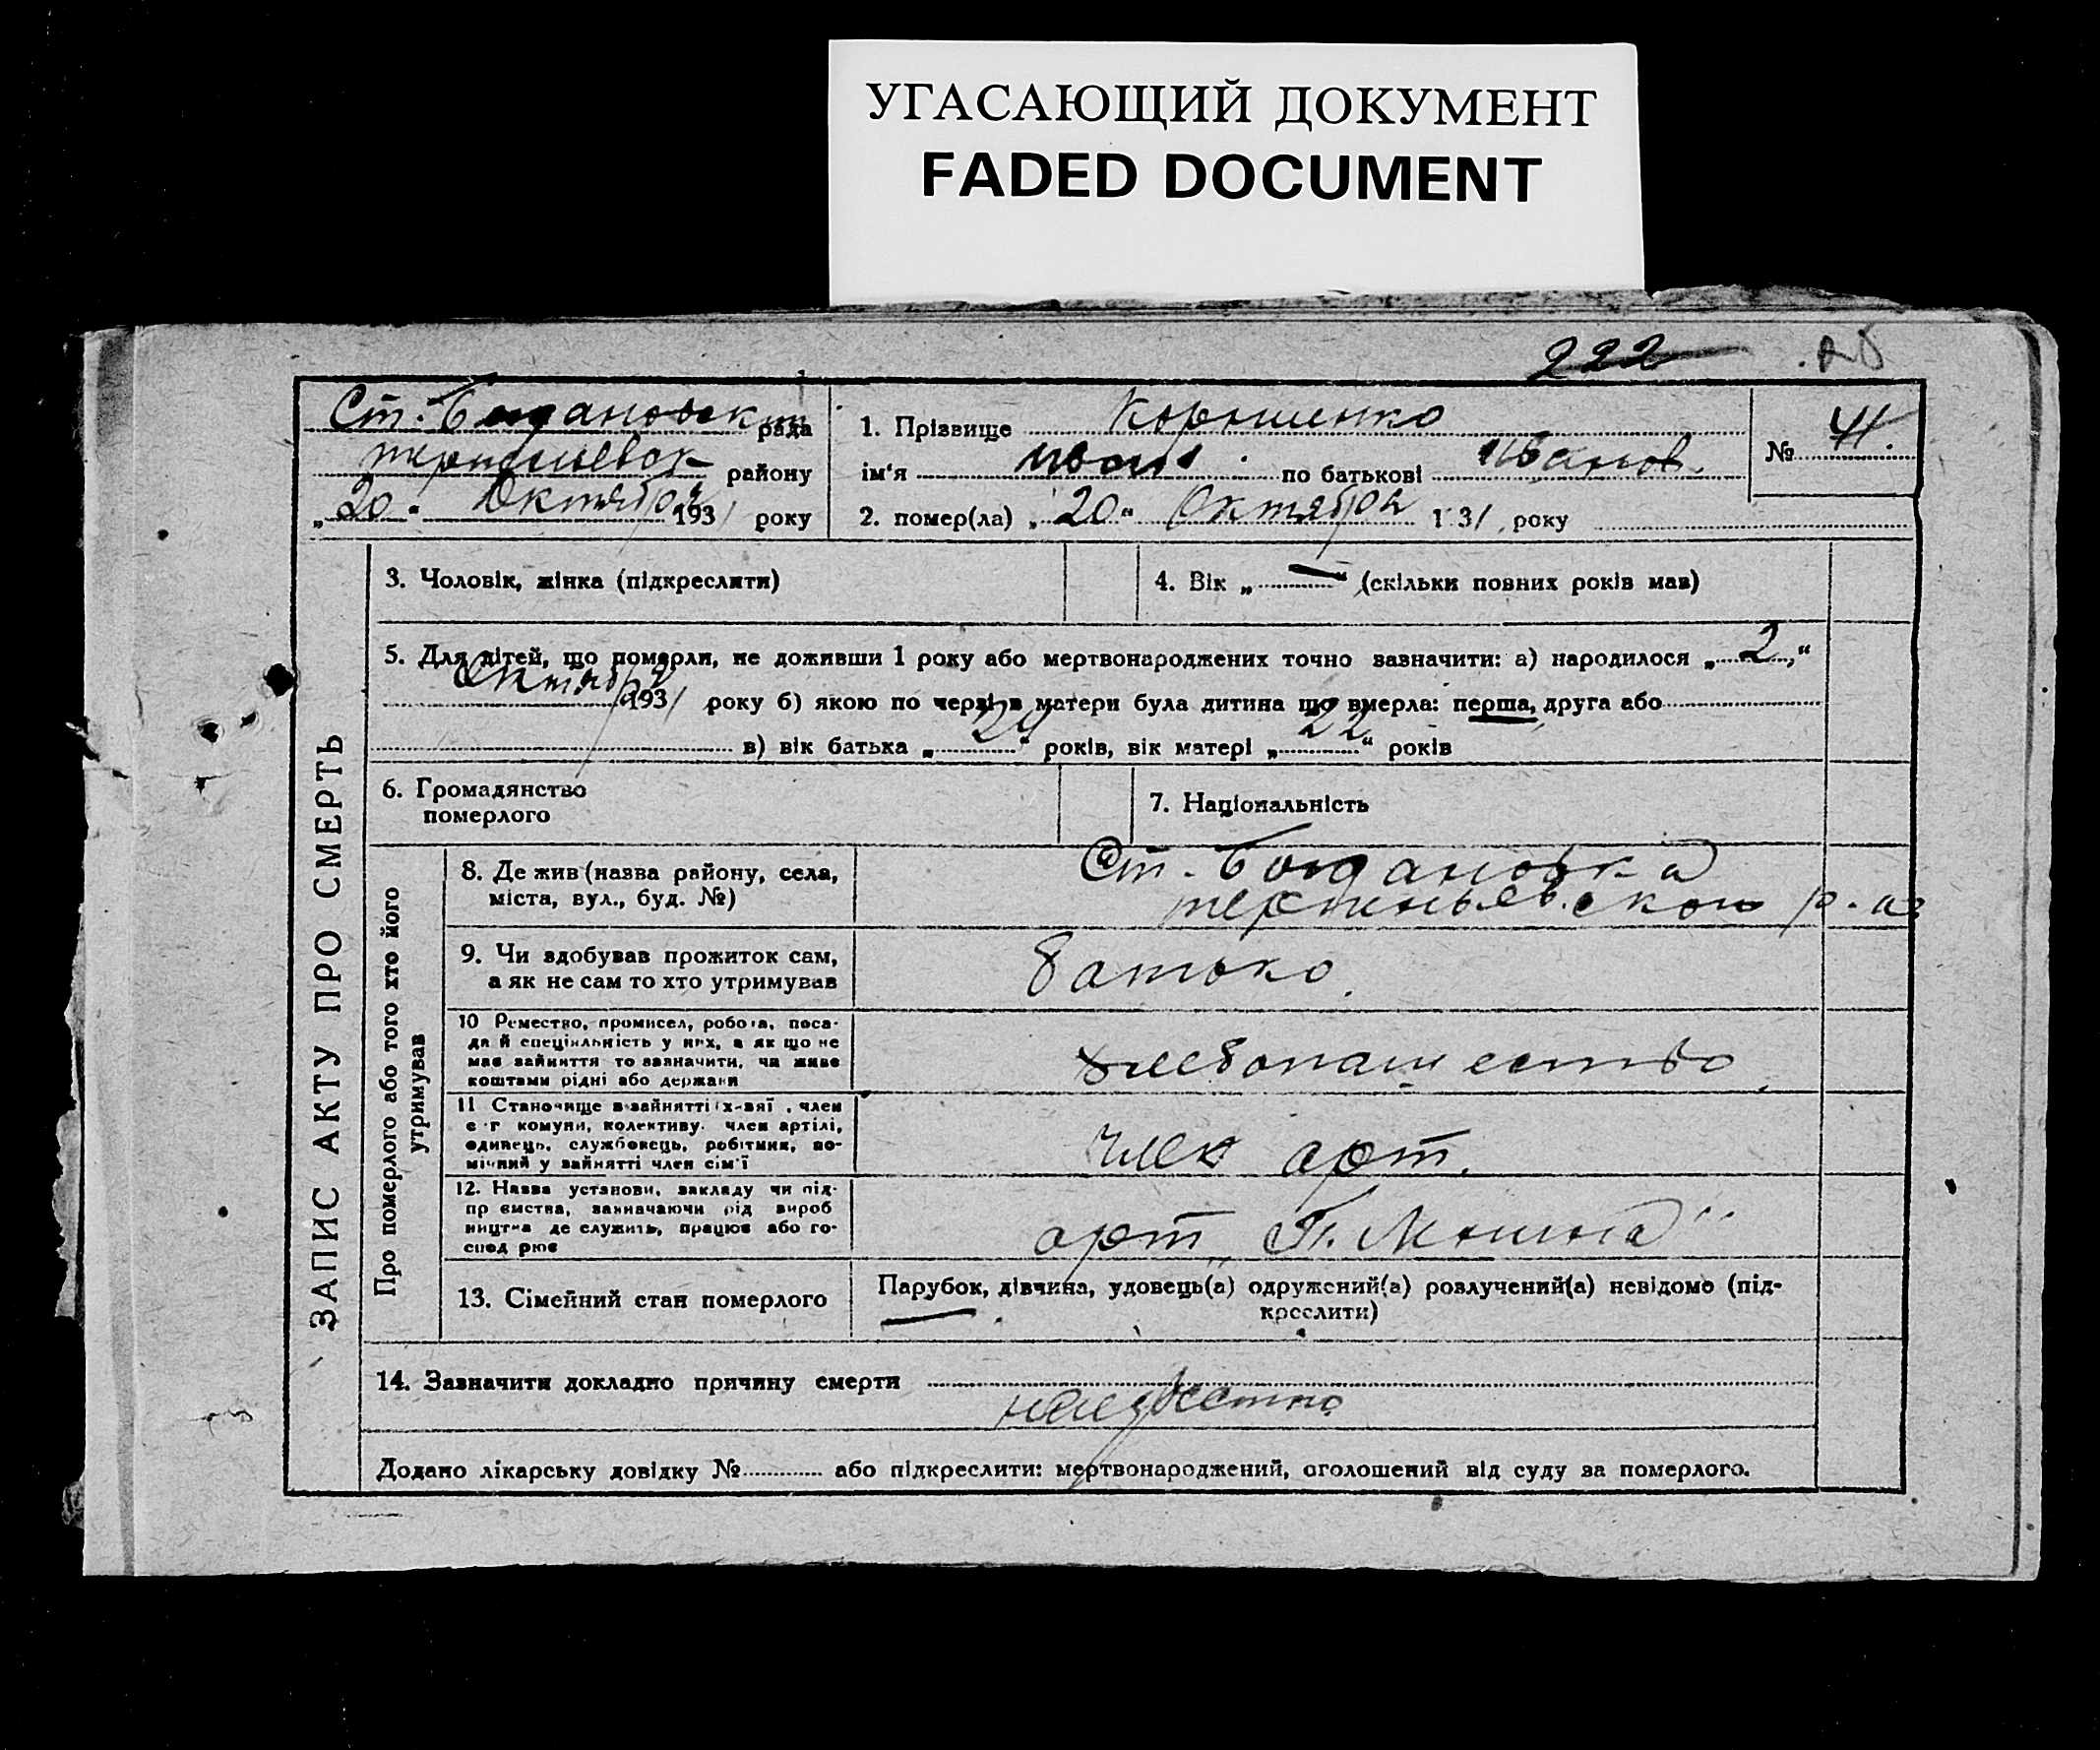 УГАСАЮЩИЙ ДОКУМЕНТ
FADED DOCUMENT
222
Ст. Богдановск рада
району
„20“ Октября 1931 року
1. Прізвище
ім'я Иван по батькові Иванов.
2. помер(ла) „20“ Октября 1 31 року
№ 41.
ЗАПИС АКТУ ПРО СМЕРТЬ
3. Чоловік, жінка (підкреслити)
4. Вік „—“ (скільки повних років мав)
5. Для дітей, що померли, не доживши 1 року або мертвонароджених точно зазначити: а) народилося „2“
Октября 1931 року б) якою по черзі в матери була дитина що вмерла: перша, друга або
в) вік батька „24“ років, вік матері „22“ років
6. Громадянство
померлого
7. Національність
Про померлого або того хто його
утримував
8. Де жив (назва району, село,
міста, вул., буд. №)
Ст. Богдановка
р-на
9. Чи здобував прожиток сам,
а як не сам то хто утримував
батько.
10 Ремество, промисел, робота, поса-
да й спеціяльність у них, а як що не
мав зайняття то зазначити, чи живе
коштами рідні або держави
хлебопашество.
11 Становище в зайнятті , член
с г комуни, колективу. член артілі,
одинець, службовець, робітник, по-
мічний у зайнятті член сім'ї
член арт.
12. Назва установи, закладу чи під-
пр ємства, зазначаючи рід вироб
ництва де служить, працює або го-
спод рює
арт „
13. Сімейний стан померлого
Парубок, дівчина, удовець(а) одружений(а) розлучений(а) невідомо (під-
креслити)
14. Зазначити докладно причину смерти
неизвестно
Додано лікарську довідку № або підкреслити: мертвонароджений, оголошений від суду за померлого.